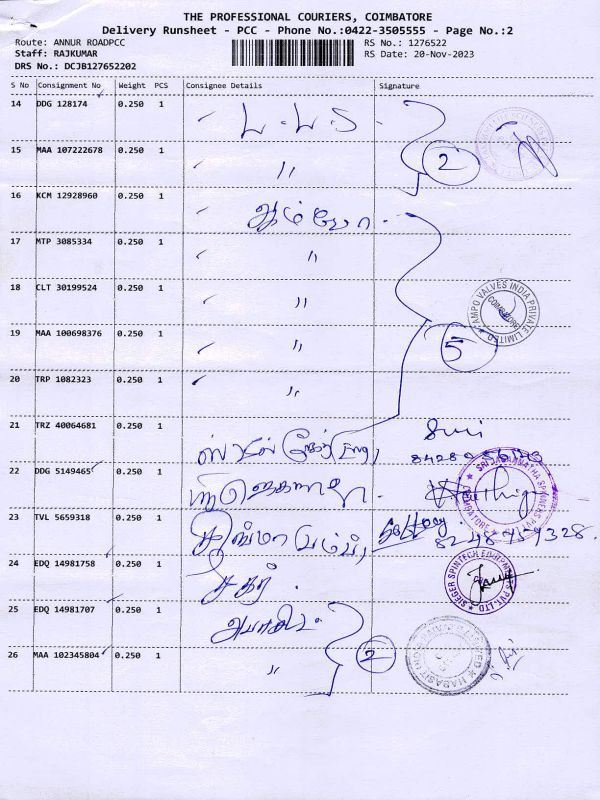 THE PROFESSIONAL COURIERS, COIMBATORE
Delivery Runsheet - PCC - Phone No.:0422-3505555 - Page No.:2
Route: ANNUR ROADPCC
RS No.: 1276522
Staff: RAJKUMAR
RS Date: 20-Nov-2023
DRS No.: DCJB127652202
S No Consignment No Weight PCS Consignee Details Signature
14 DDG 128174 0.250 1 L.L.S
15 MAA 107222678 0.250 1 〃 2
16 KCM 12928960 0.250 1
17 MTP 3085334 0.250 1 〃
18 CLT 30199524 0.250 1 〃
AMPO VALVES INDIA PRIVATE LIMITED
COIMBATORE
19 MAA 100698376 0.250 1 〃 5
20 TRP 1082323 0.250 1 〃
21 TRZ 40064681 0.250 1
22 DDG 5149465 0.250 1
SRI JAGANNATHA SPINNERS PVT
COIMBATORE
23 TVL 5659318 0.250 1
24 EDQ 14981758 0.250 1
SIEGER SPINTECH EQUIPMENTS PVT. LTD
25 EDQ 14981707 0.250 1
26 MAA 102345804 0.250 1 〃 2